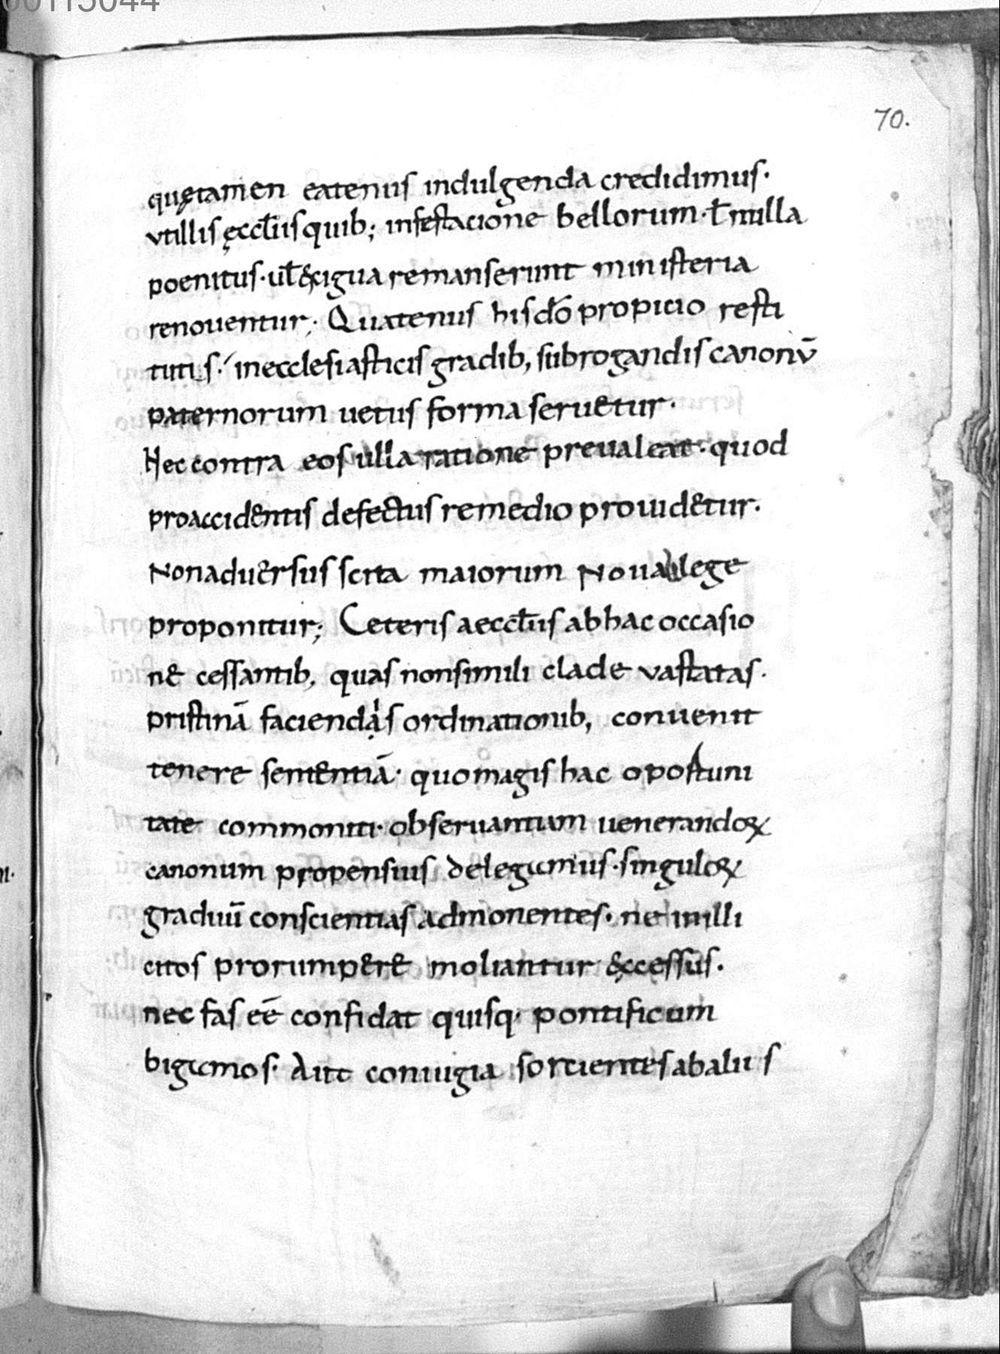 00113044
70.
quętamen eatenus indulgenda credidimus·
utillis ęccłiis quib; infestacione bellorum· ł nulla
poenitus· uł &xigua remanserunt ministeria
renouentur; Quatenus his dō propicio resti
tutis· in ecclesiasticis gradib, subrogandis canonū
paternorum uetus forma seruetur·
Nec contra eos ulla ratione preualeat· quod
pro accidentis defectus remedio prouidetur·
Non aduersus scita maiorum Noua lege
proponitur; Ceteris aeccłiis ab hac occasio
ne cessantib, quas non simili clade vastatas·
pristinā faciendis ordinationib, conuenit
tenere sententiā· quo magis hac oportuni
tate commoniti· obseruantiam uenerandoꝝ
canonum propensius delegamus· singuloꝝ
graduū conscientias admonentes· ne in illi
citos prorumpere moliantur &xcessus·
nec fas eē confidat quisq· pontificum
bigamos· Aut coniugia sortientes ab aliis